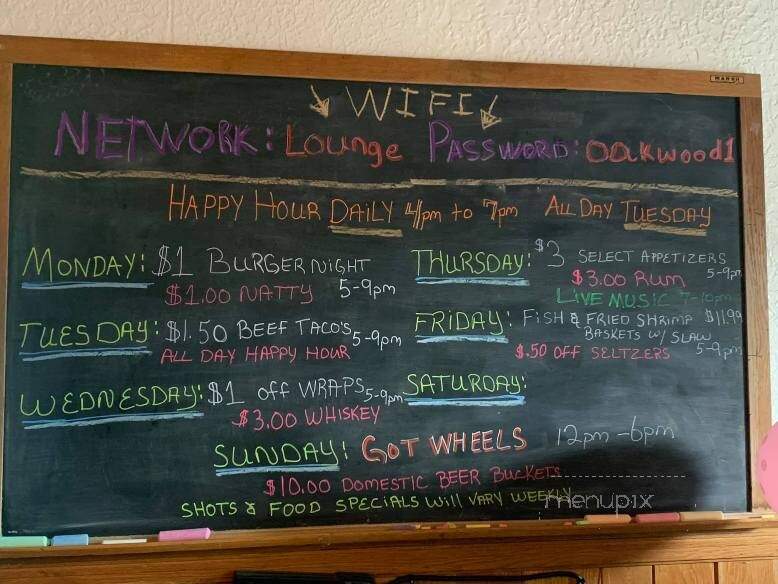 MARSH
WIFI
NETWORK: Lounge PASSWORD: Oakwood1
HAPPY HOUR DAILY 4pm to 7pm ALL DAY TUESDAY
MONDAY: $1 BURGER NIGHT
$1.00 NATTY 5-9pm
TUESDAY: $1.50 BEEF TACO'S 5-9pm
ALL DAY HAPPY HOUR
WEDNESDAY: $1 off WRAPS 5-9pm
$3.00 WHISKEY
THURSDAY: $3 SELECT APPETIZERS
$3.00 Rum 5-9pm
LIVE MUSIC 7-10pm
FRIDAY: FISH & FRIED SHRIMP $11.99
BASKETS W/ SLAW
$.50 OFF SELTZERS 5-9pm
SATURDAY:
SUNDAY: GOT WHEELS 12pm-6pm
$10.00 DOMESTIC BEER BUCKETS
SHOTS & FOOD SPECIALS Will VARY WEEKLY
menupix